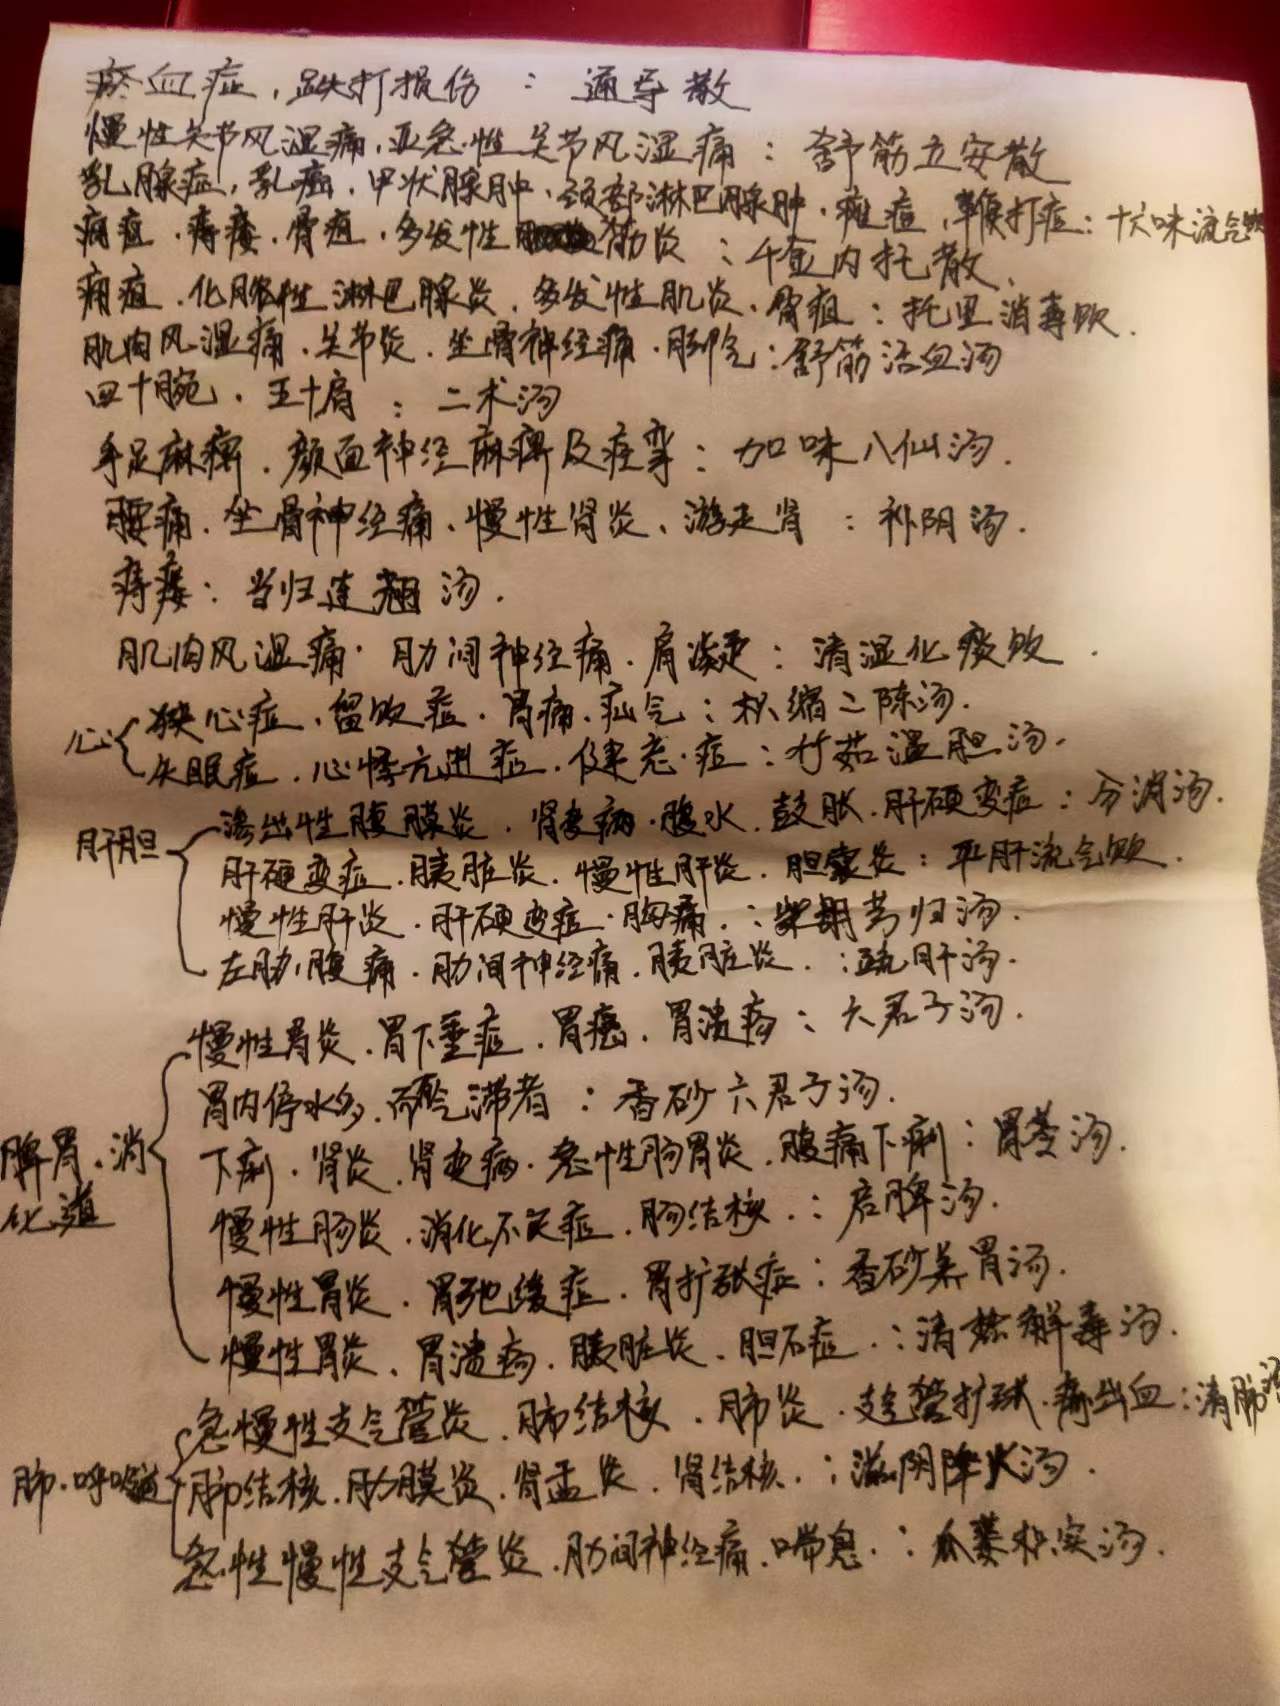 瘀血症，跌打损伤：通导散
慢性关节风湿痛，亚急性关节风湿痛：舒筋立安散
乳腺症，乳癌，甲状腺肿、颈部淋巴腺肿、瘫疽，鞭打症：十六味流气饮
痈疽，痔瘘，骨疽，多发性筋炎：千金内托散、
痈疽，化脓性淋巴腺炎，多发性肌炎、骨疽：托里消毒饮．
肌肉风湿痛，关节炎．坐骨神经痛．脚气：舒筋活血汤
四十腕．五十肩：二术汤
手足麻痹．颜面神经麻痹及痉挛：加味八仙汤．
腰痛．坐骨神经痛、慢性肾炎、游走肾：补阴汤．
痔瘘：当归连翘汤．
肌肉风湿痛．肋间神经痛．肩凝：清湿化痰饮．
心 狭心症．留饮症．胃痛．疝气：枳缩二陈汤．
失眠症．心悸亢进症．健忘症：竹茹温胆汤．
肝胆 渗出性腹膜炎．肾变病．腹水．鼓胀．肝硬变症：分消汤．
肝硬变症．胰脏炎．慢性肝炎．胆囊炎：平肝流气饮．
慢性肝炎．肝硬变症．胸痛．：柴胡芍归汤．
左肋腹痛．肋间神经痛．胰脏炎．：疏肝汤．
脾胃．消化道 慢性胃炎．胃下垂症．胃癌．胃溃疡：六君子汤．
胃内停水多．而气滞者：香砂六君子汤．
下痢．肾炎．肾变病．急性肠胃炎．腹痛下痢：胃苓汤．
慢性肠炎．消化不良症．肠结核．：启脾汤．
慢性胃炎．胃弛缓症．胃扩张症：香砂养胃汤．
慢性胃炎．胃溃疡．胰脏炎．胆石症．：清热解毒汤．
肺．呼吸道 急慢性支气管炎．肺结核．肺炎．支气管扩张．痔出血：清肺汤
肺结核．肋膜炎．肾盂炎．肾结核．：滋阴降火汤．
急性慢性支气管炎．肋间神经痛．喘息．：瓜蒌枳实汤．